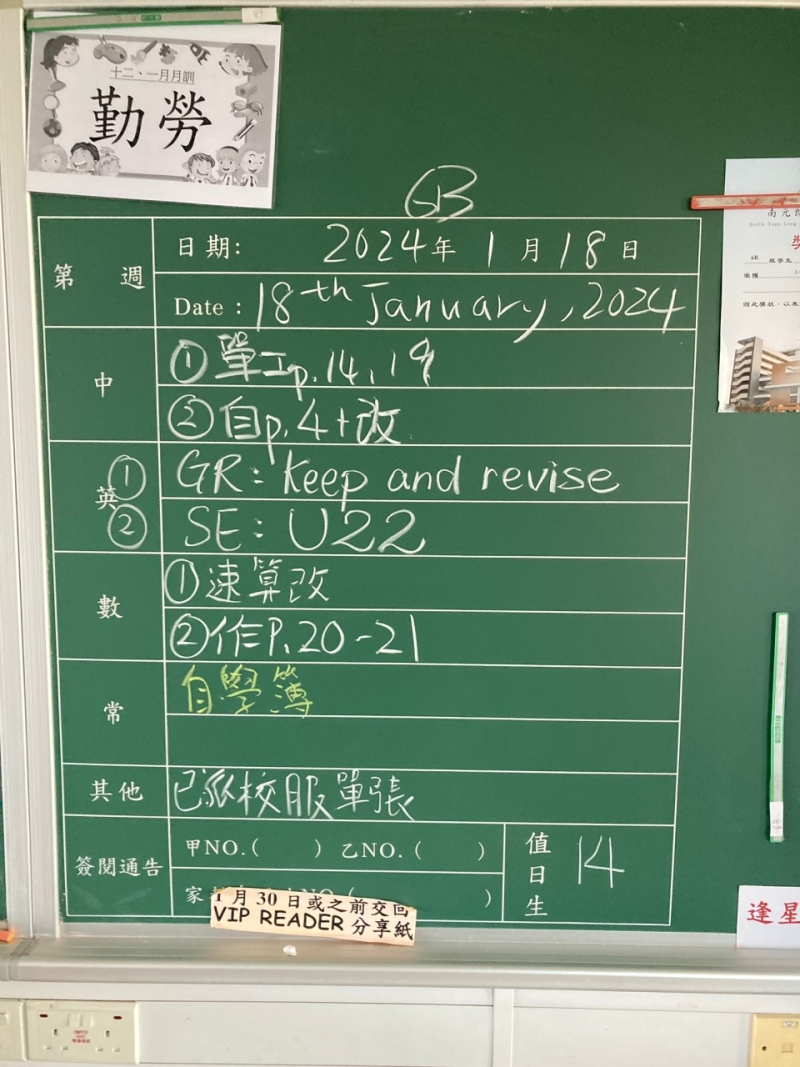 十二、一月月訓
勤勞
6B
第 週
日期: 2024年 1月18日
Date : 18th January, 2024
中
① 單工p.14,19
② 自p.4+改
英
① GR: Keep and revise
② SE: U22
數
① 速算改
② 作P.20-21
常
自學簿
其他
校服單張
簽閱通告
甲NO.( ) 乙NO.( )
家 )
值日生 14
1月30日或之前交回
VIP READER 分享紙
南元
South Yuen Long
獎
6B 班學生
榮獲
因此獎狀，以
逢星